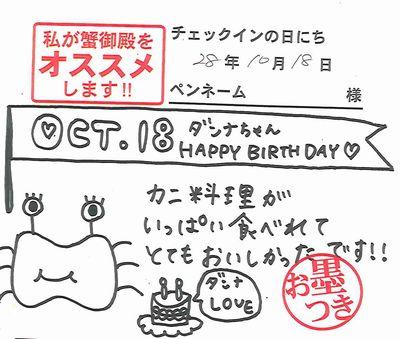 私が蟹御殿を
オススメ
します!!
チェックインの日にち
28年10月18日
ペンネーム 様
♡OCT.18 ダンナちゃん
HAPPY BIRTHDAY♡
カニ料理が
いっぱい食べれて
とてもおいしかったです!!
ダンナ
LOVE
お墨つき